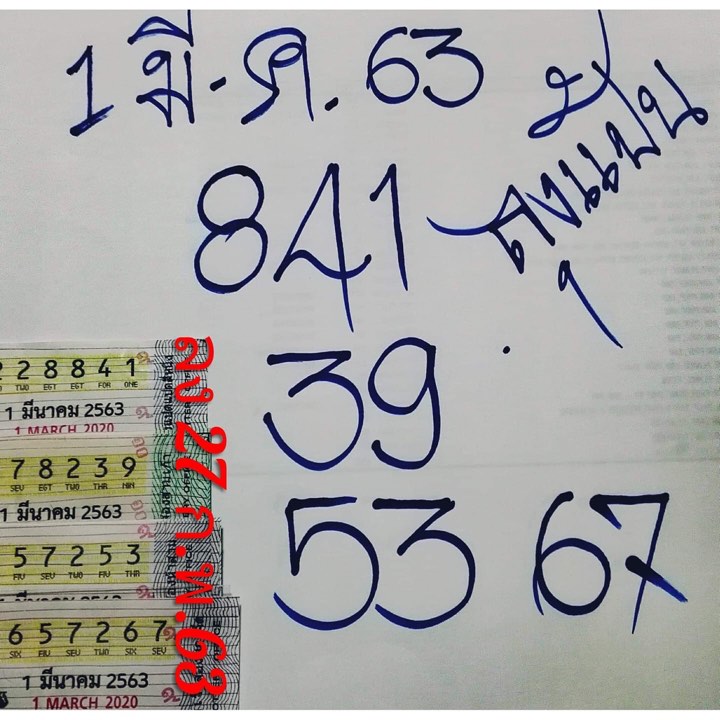 1 มี.ค. 63
841
39
53 67
ลง 27 ก.พ. 63
2 2 8 8 4 1
TWO EGT EGT FOR ONE
1 มีนาคม 2563
1 MARCH 2020
7 8 2 3 9
SEV EGT TWO THR NIN
1 มีนาคม 2563
5 7 2 5 3
FIV SEV TWO FIV THR
มีนาคม 2563
6 5 7 2 6 7
SIX FIV SEV TWO SIX SEV
1 มีนาคม 2563
1 MARCH 2020